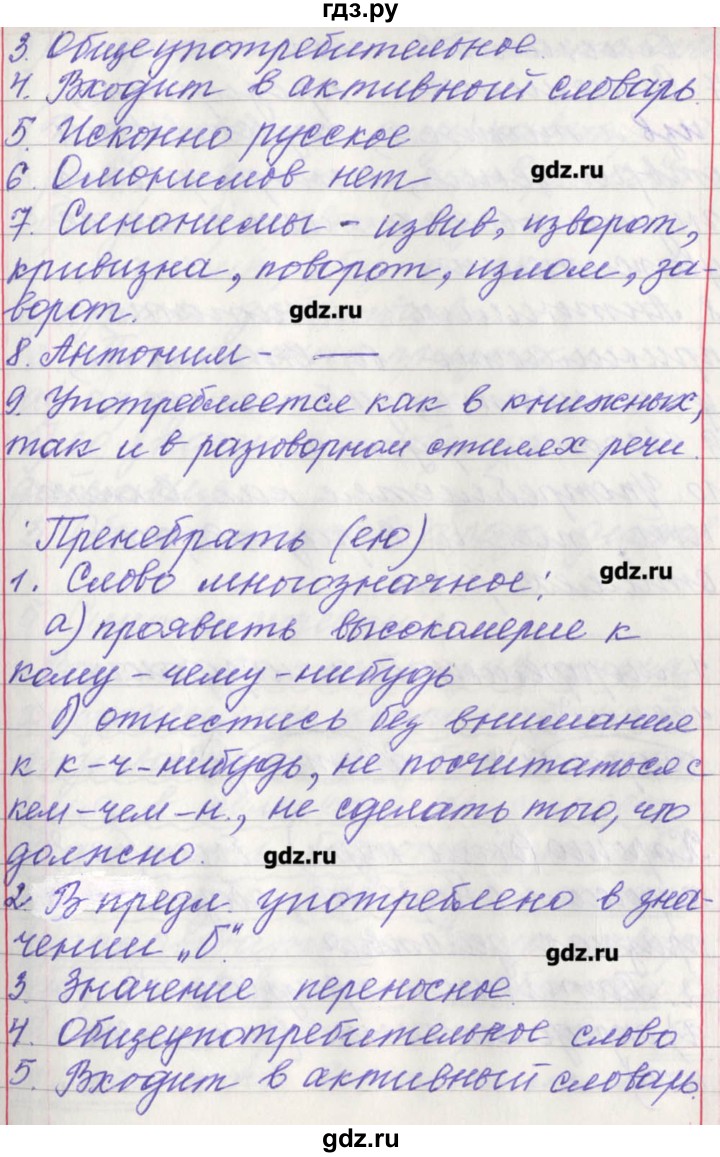 гдз.ру
3. Общеупотребительное.
4. Входит в активный словарь.
5. Исконно русское
6. Омонимов нет
gdz.ru
7. Синонимы - извив, изворот,
кривизна, поворот, излом, за-
ворот.
gdz.ru
8. Антоним - —
9. Употребляется как в книжных,
так и в разговорном стилях речи.
Пренебрать (ею)
1. Слово многозначное:
gdz.ru
а) проявить высокомерие к
кому-чему-нибудь
б) отнестись без внимания
к к-ч-нибудь, не посчитаться с
кем-чем-н., не сделать того, что
должно.
gdz.ru
2. В предл. употреблено в зна-
чении „б".
gdz.ru
3. Значение переносное.
4. Общеупотребительное слово
5. Входит в активный словарь.
gdz.ru